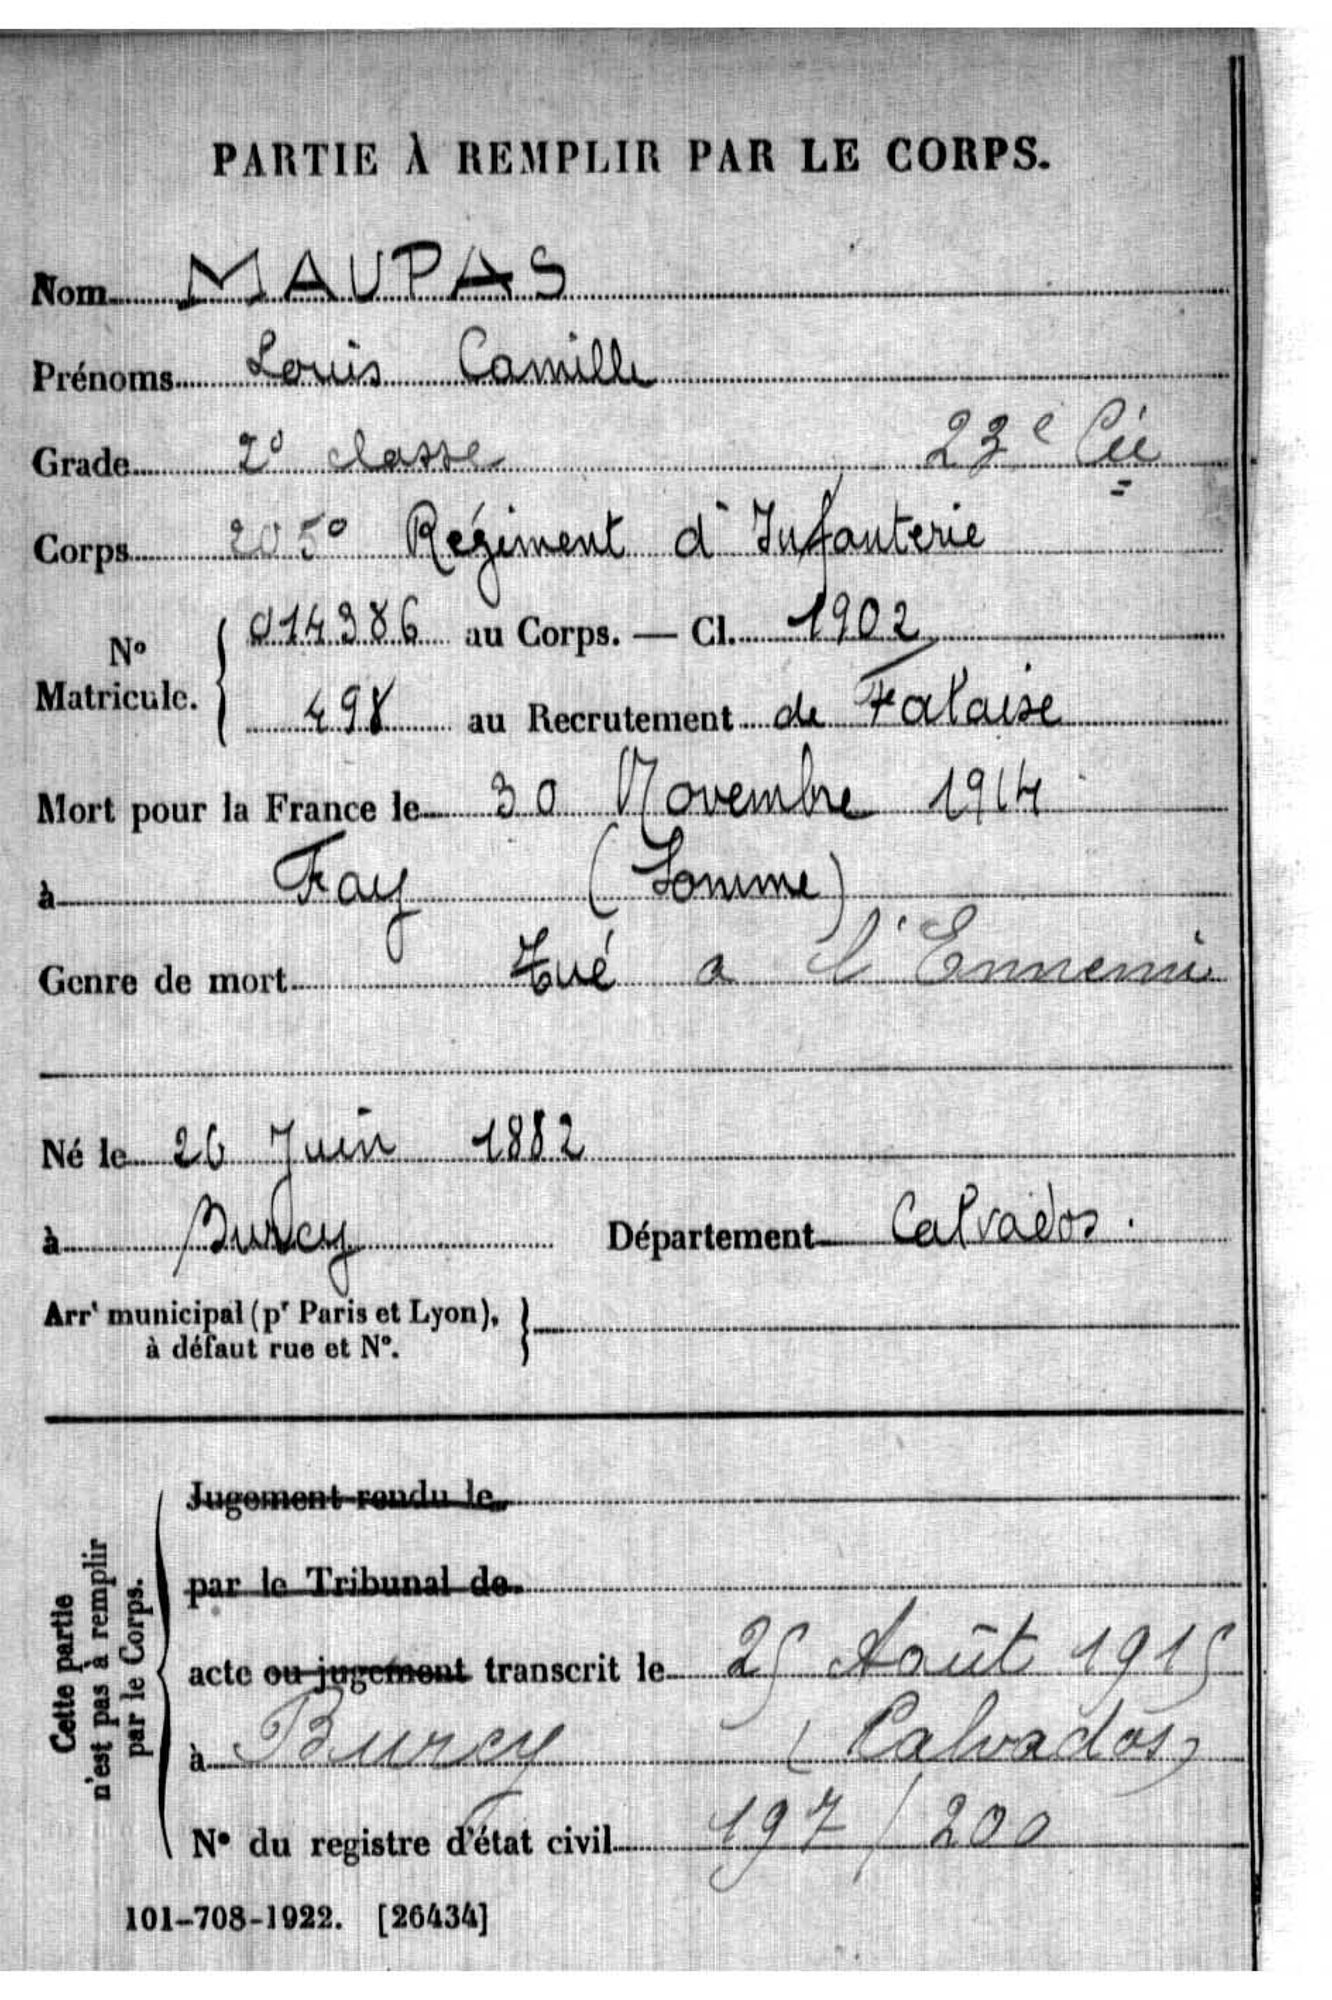 PARTIE À REMPLIR PAR LE CORPS.
Nom MAUPAS
Prénoms Louis Camille
Grade 2e classe 23e Cie
Corps 205e Régiment d'Infanterie
No Matricule. { 014386 au Corps. — Cl. 1902
498 au Recrutement de Falaise
Mort pour la France le 30 Novembre 1914
à Fay (Somme)
Genre de mort Tué a l'Ennemi
Né le 26 Juin 1882
à Burcy Département Calvados.
Arrt municipal (pr Paris et Lyon), à défaut rue et N°. }
Cette partie n'est pas à remplir par le Corps.
Jugement rendu le
par le Tribunal de
acte ou jugement transcrit le 25 Août 1915
à Burcy (Calvados)
N° du registre d'état civil 197/200
101-708-1922. [26434]